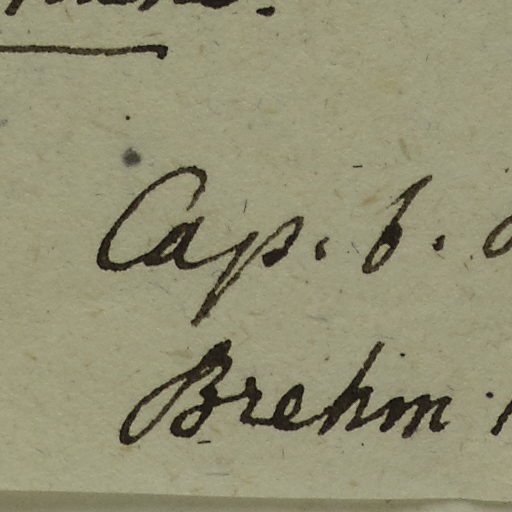 Cap. b.
Brehm.